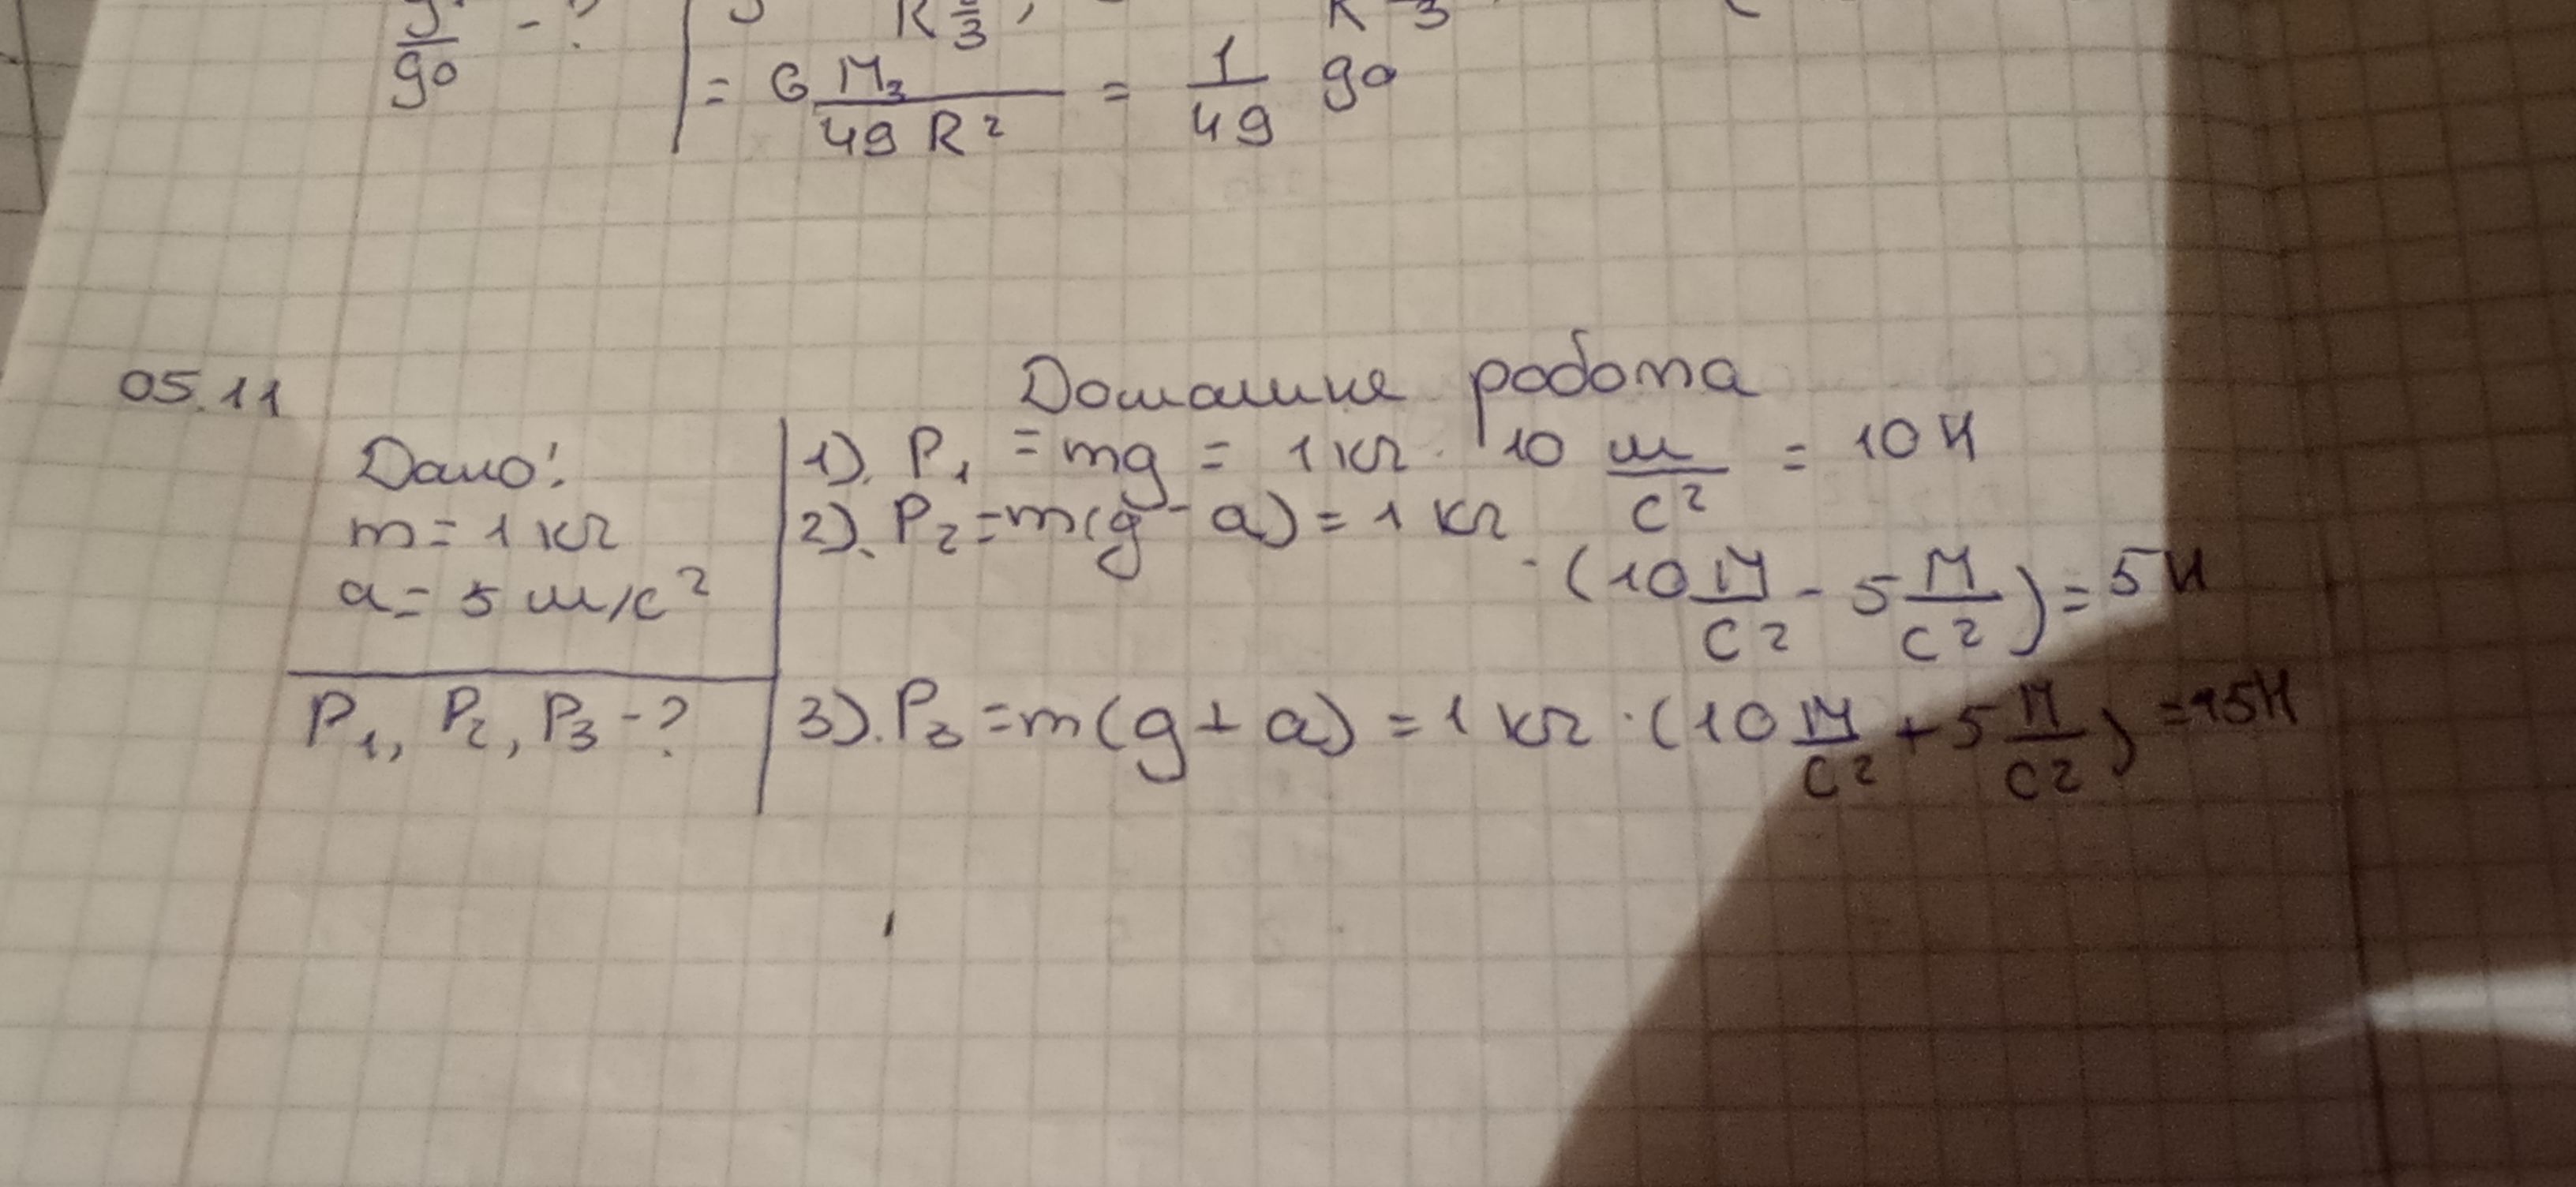 g0 - ?
= G M₃ / 49 R² = 1/49 g0
05.11 Домашнє робота
Дано:
m = 1 кг
a = 5 м/с²
P₁, P₂, P₃ - ?
1). P₁ = mg = 1 кг · 10 м/с² = 10 Н
2). P₂ = m(g - a) = 1 кг
· (10 м/с² - 5 м/с²) = 5 Н
3). P₃ = m(g + a) = 1 кг · (10 м/с² + 5 м/с²) = 15 Н